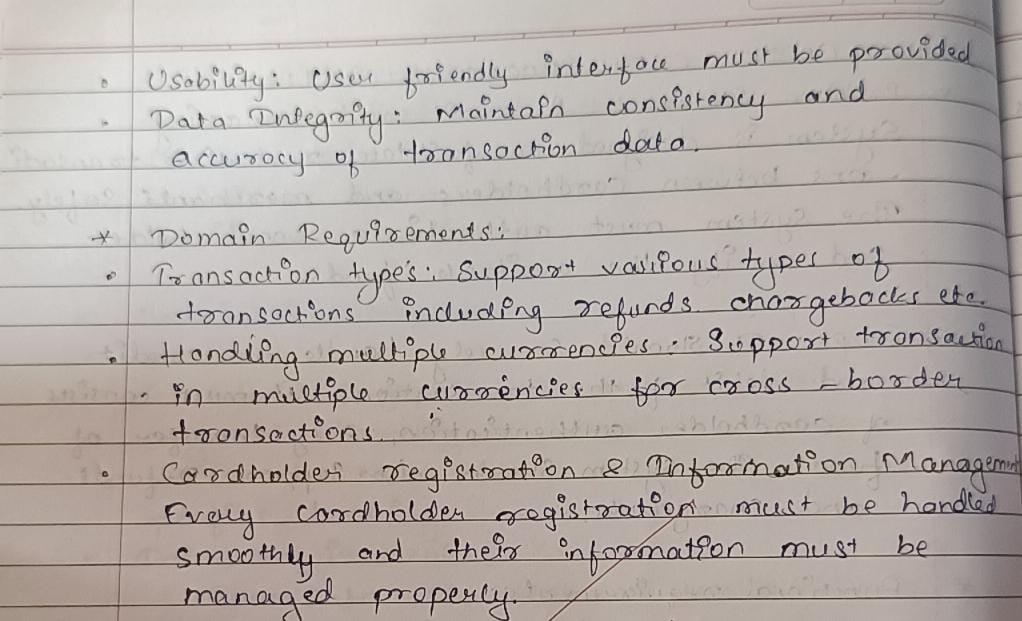 • Usability: User friendly interface must be provided
• Data Integrity: Maintain consistency and
accuracy of transaction data.
* Domain Requirements:
• Transaction types: Support various types of
transactions including refunds chargebacks etc.
• Handling multiple currencies: Support transaction
• in multiple currencies for cross-border
transactions.
• Cardholder registration & Information Management
Every cardholder registration must be handled
smoothly and their information must be
managed properly.